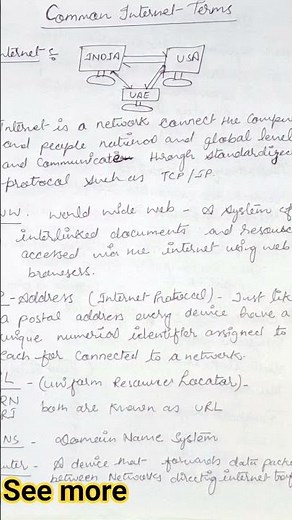 Common Internet Terms
nternet :
INDIA
USA
UAE
Internet is a network connect the compu
and people national and global level
and communicate through standardize
protocal such as TCP/IP.
WW. World wide web - A system of
interlinked documents and resourc
accessed via the internet using web
browsers.
P-Address (Internet Protocol) - Just lik
a postal address every device have a
unique numerical identifier assigned to
each for connected to a networks.
RL - (Uniform Resource Locator) -
RN
RI both are known as URL
NS - Domain Name System
uter - A device that forwards data packe
between Networks directing internet traf
See more